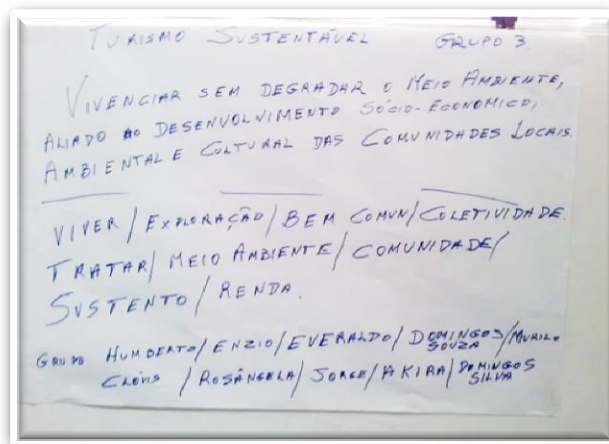 TURISMO SUSTENTÁVEL GRUPO 3
VIVENCIAR SEM DEGRADAR O MEIO AMBIENTE,
ALIADO AO DESENVOLVIMENTO SÓCIO-ECONOMICO,
AMBIENTAL E CULTURAL DAS COMUNIDADES LOCAIS.
VIVER / EXPLORAÇÃO / BEM COMUN / COLETIVIDADE.
TRATAR / MEIO AMBIENTE / COMUNIDADE /
SUSTENTO / RENDA.
GRUPO HUMBERTO / ENZIO / EVERALDO / DOMINGOS SOUZA / MURILO
CLÓVIS / ROSÂNGELA / JORGE / AKIRA / DOMINGOS SILVA